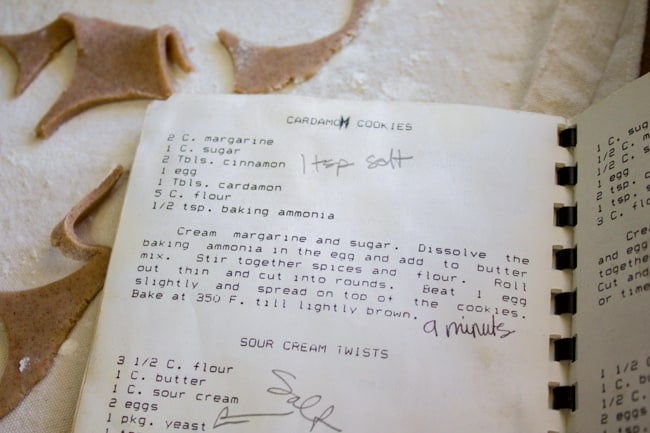 CARDAMOM COOKIES
2 C. margarine
1 C. sugar
2 Tbls. cinnamon 1 tsp salt
1 egg
1 Tbls. cardamon
5 C. flour
1/2 tsp. baking ammonia
Cream margarine and sugar. Dissolve the
baking ammonia in the egg and add to butter
mix. Stir together spices and flour. Roll
out thin and cut into rounds. Beat 1 egg
slightly and spread on top of the cookies.
Bake at 350 F. till lightly brown.
9 minuts
SOUR CREAM TWISTS
3 1/2 C. flour
1 C. butter
1 C. sour cream
Salt
2 eggs
1 pkg. yeast
1 C. sug
1/2 C.
1/2 C.
1 egg
2 tsp.
1 tsp.
3 C. fl
Crea
and eg
togethe
Cut and
or time
1 1/2 C
1 C. bu